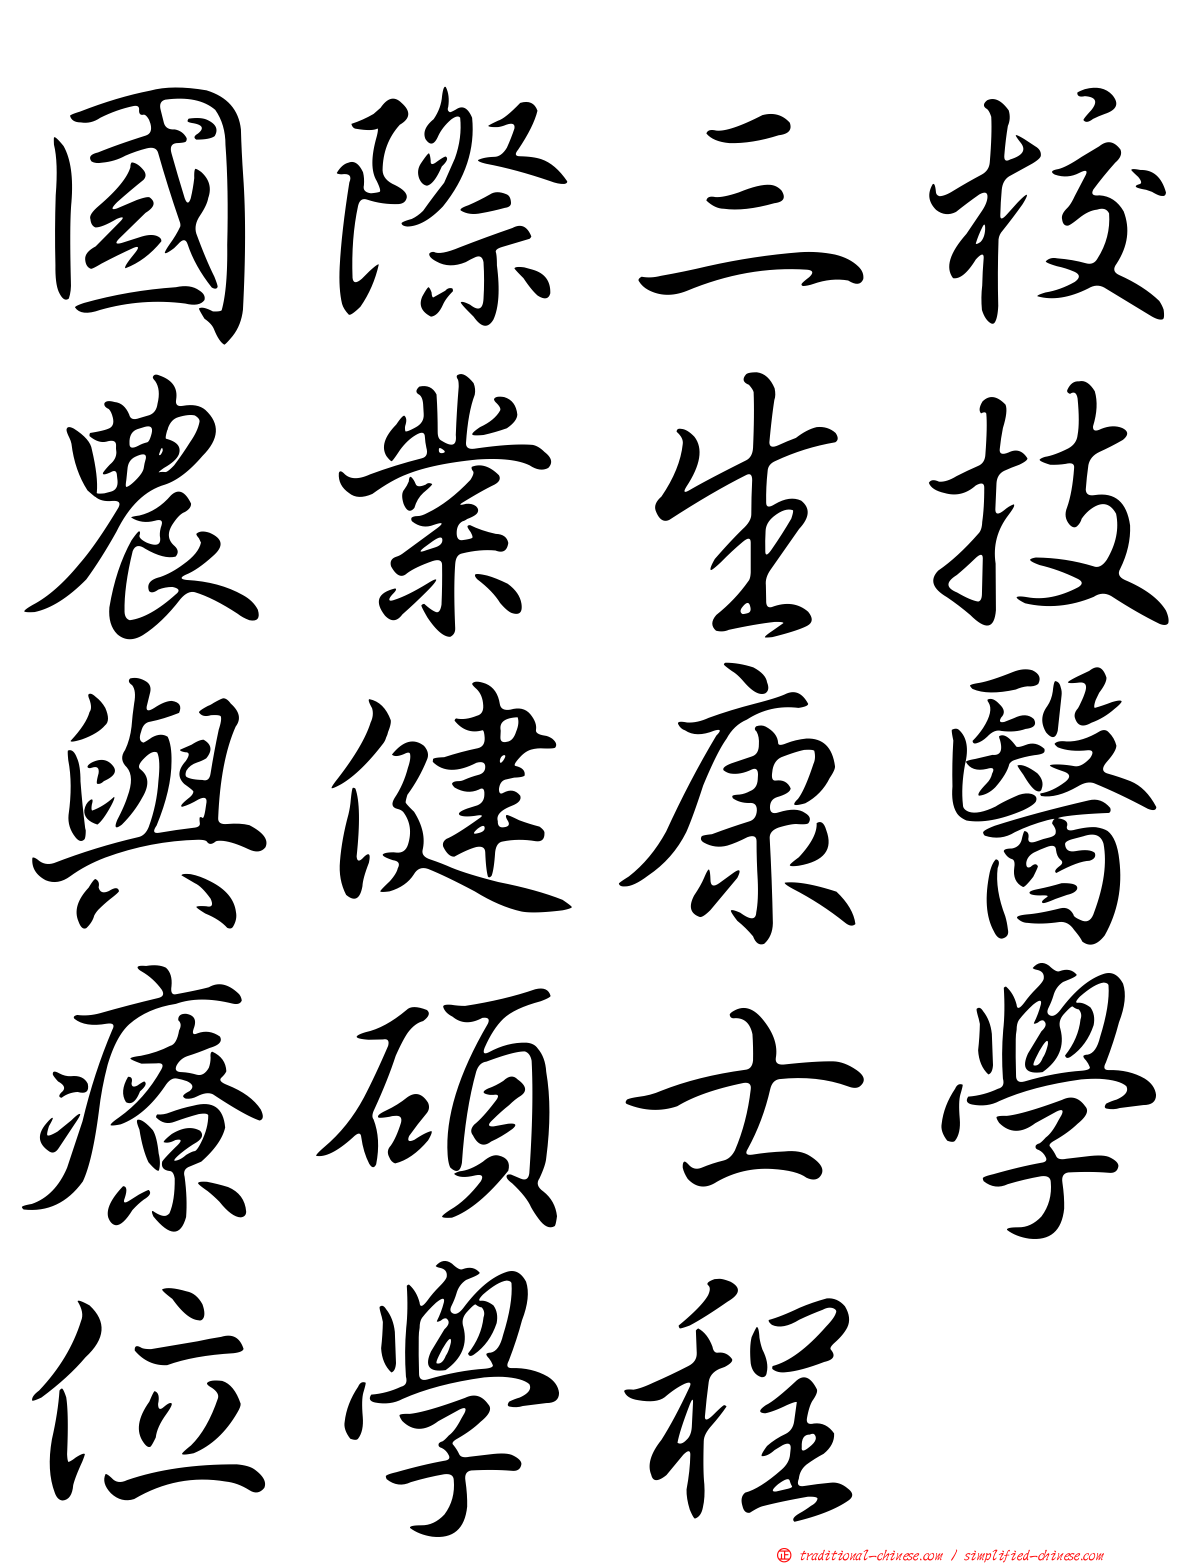 國際三校
農業生技
與健康醫
療碩士學
位學程
正 traditional-chinese.com / simplified-chinese.com